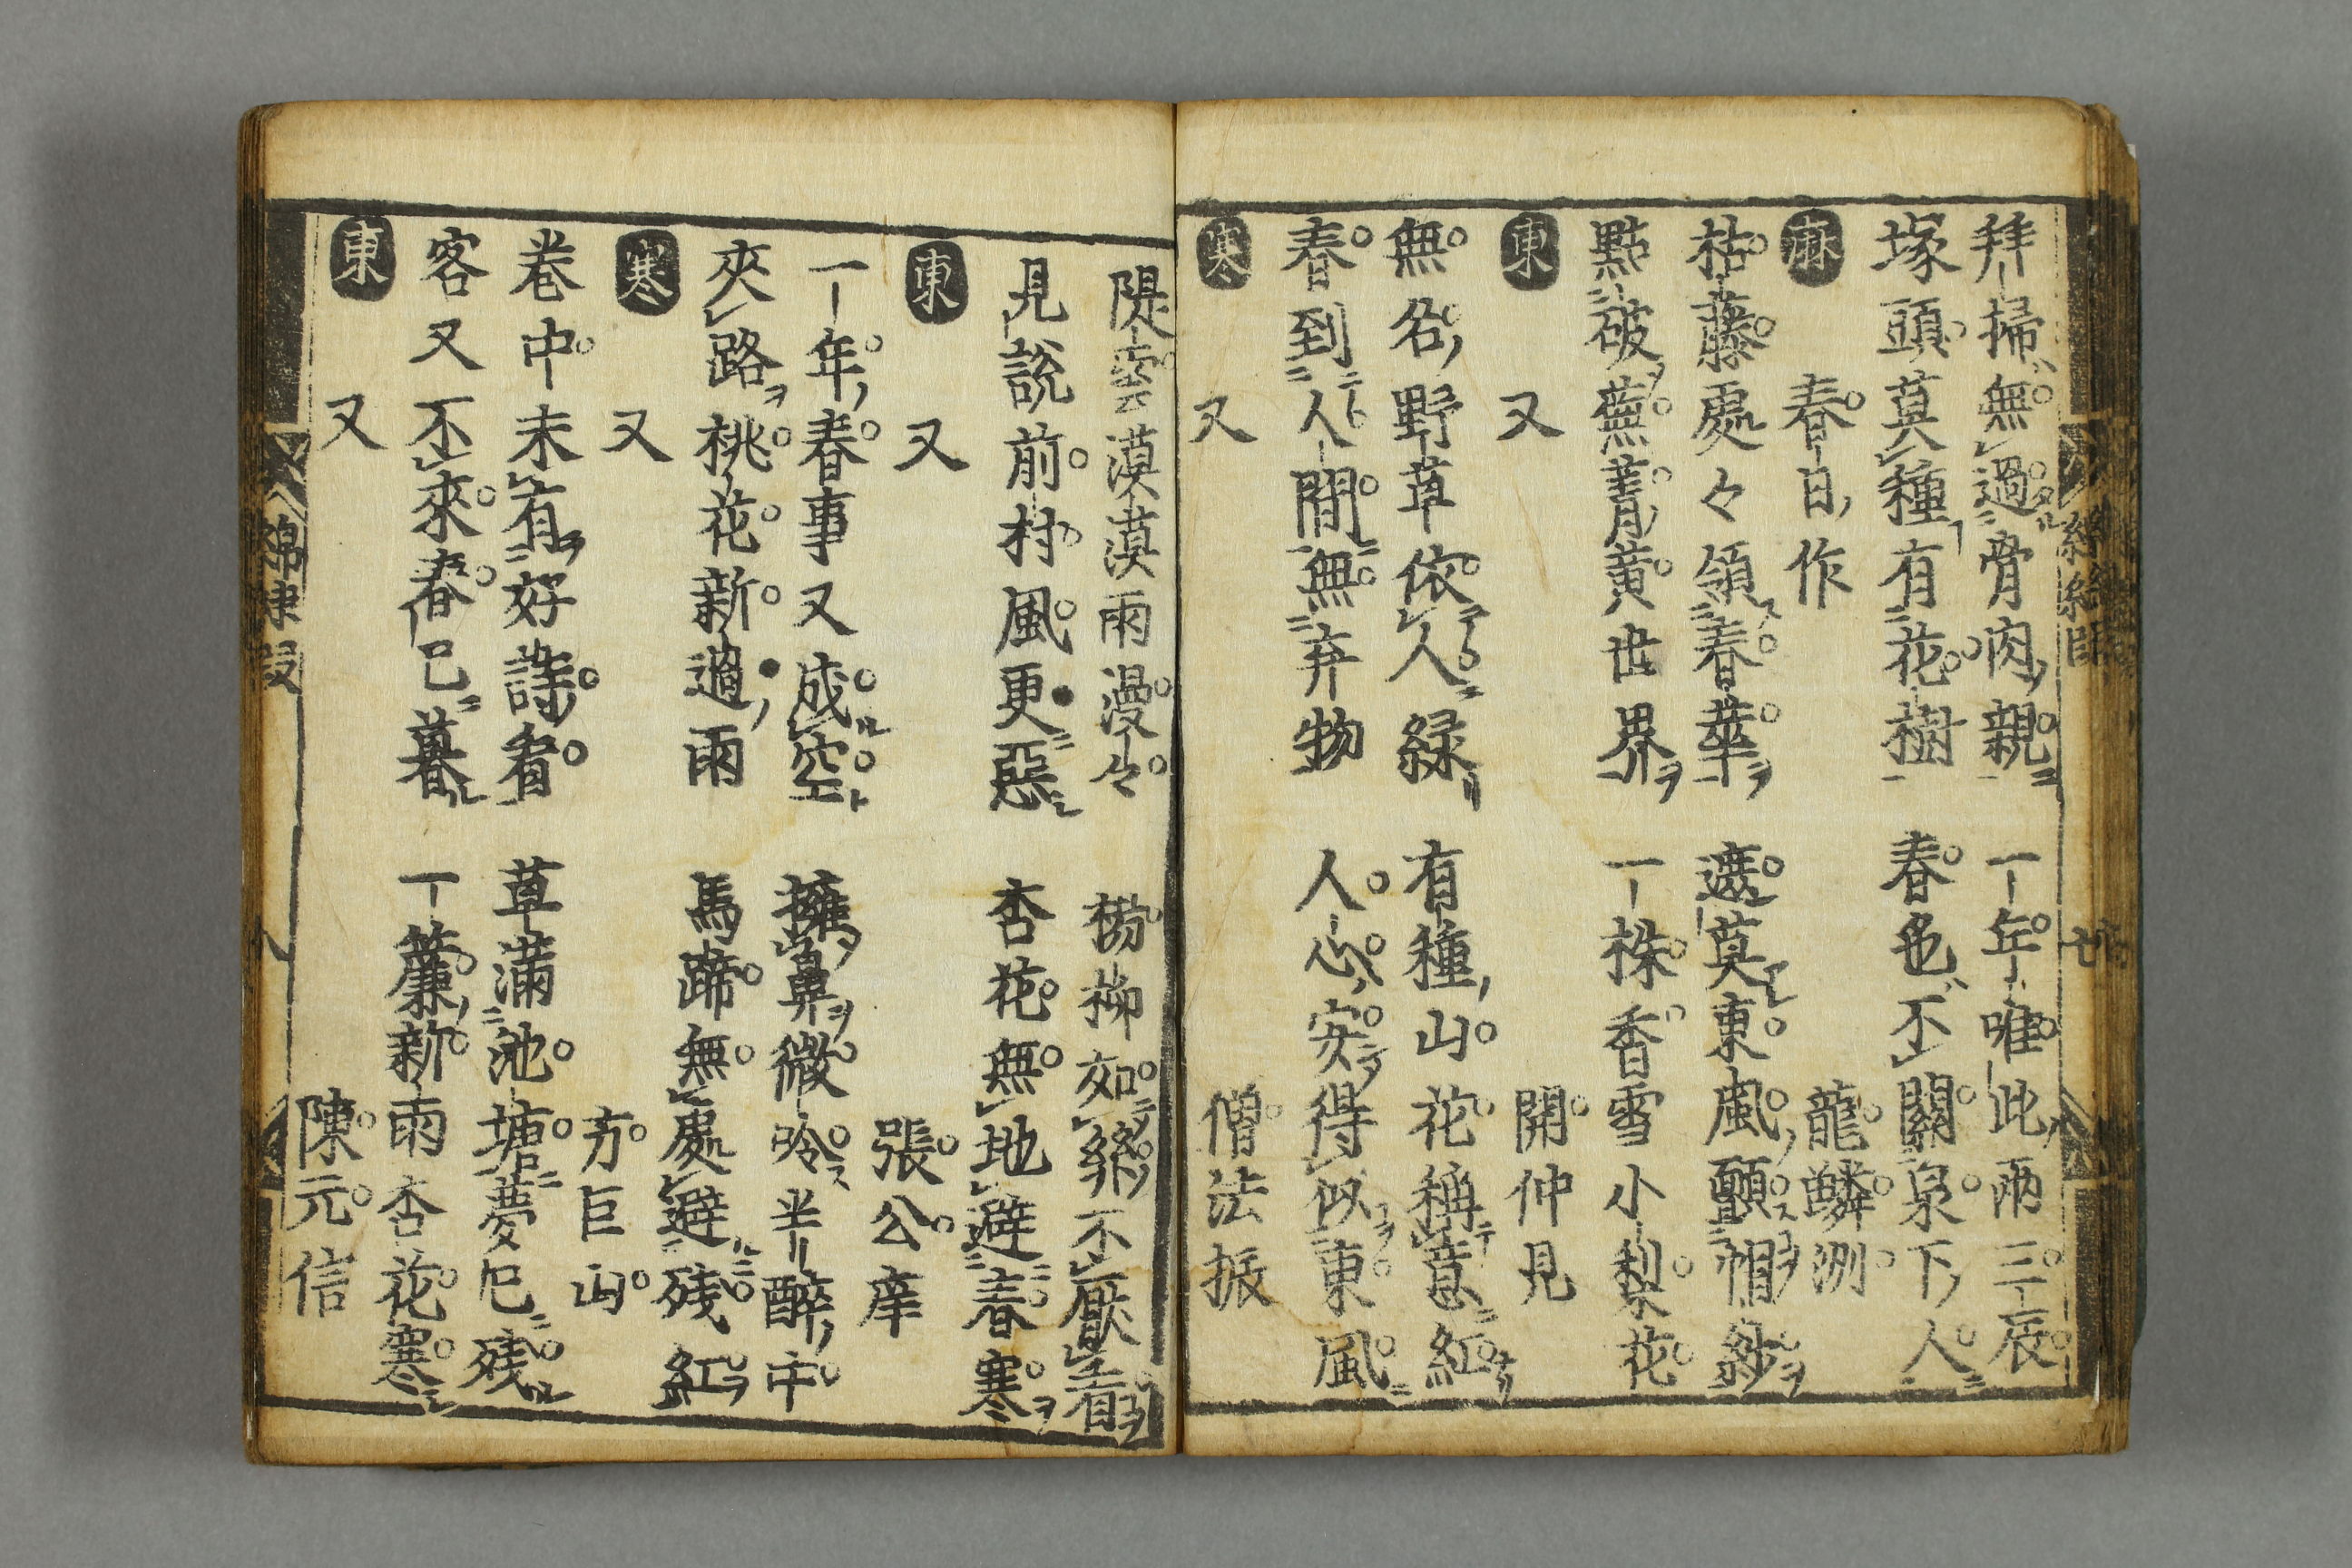 拜掃無過骨肉親 一年唯此兩三辰
塚頭莫種有花樹 春色不關泉下人
麻 春日作 龍麟洲
枯藤處々領春華 遮莫東風顫帽紗
點破蕪菁黄世界 一株香雪小梨花
東 又 開仲見
無名野草依人緑 有種山花稱意紅
春到人間無弃物 人心安得似東風
寒 又 僧法振
隄雲漠漠雨漫々 楊柳如絲不厭看
見說前村風更惡 杏花無地避春寒
東 又 張公庠
一年春事又成空 擁鼻微吟半醉中
夾路桃花新過雨 馬蹄無處避殘紅
寒 又 方巨山
巻中未有好詩看 草滿池塘夢已殘
客又不來春已暮 一簾新雨杏花寒
東 又 陳元信